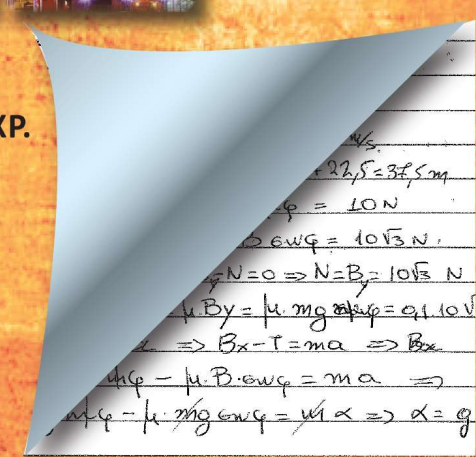 ΧΡ.
m/s.
+22,5=37,5m
φ = 10N
συνφ = 10√3 N.
-N=0 => N=By=10√3 N
μ.By = μ.mg συνφ=0,1.10√
=> Bx-T=ma => Bx
μφ - μ.B.συνφ = ma =>
μφ - μ.mgσυνφ = mα => α = g